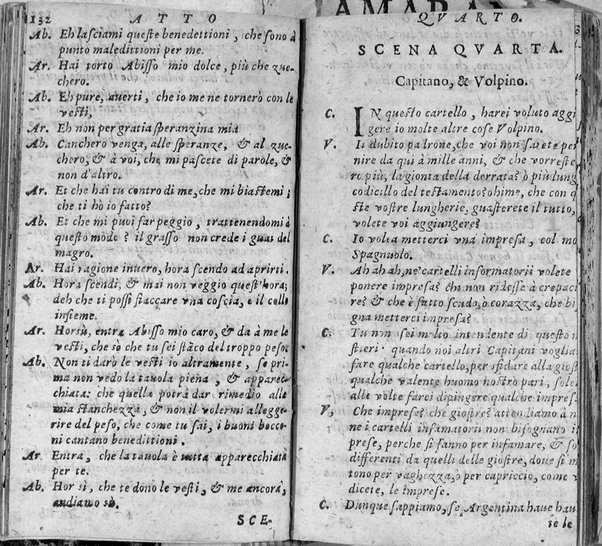 132 ATTO
Ab. Eh lasciami queste benedettioni, che sono à
punto maledittioni per me.
Ar. Hai torto Abisso mio dolce, più che zuc-
chero.
Ab. Eh pure, averti, che io me ne tornerò con le
vesti,
Ar. Eh non per gratia speranzina mia
Ab. Canchero venga, alle speranze, & al zuc-
chero, & à voi, che mi pascete di parole, &
non d'altro.
Ar. Et che hai tu contro di me, che mi biastemi;
che ti hò io fatto?
Ab. Et che mi puoi far peggio, trattenendomi à
questo modo? il grasso non crede i guai del
magro.
Ar. Hai ragione invero, hora scendo ad aprirti.
Ab. Hora scendi, & mai non veggio quest'hora;
deh che ti possi fiaccare vna coscia, e il collo
insieme.
Ar. Horsù, entra Abisso mio caro, & da à me le
vesti, che sò che tu sei stàco del troppo peso.
Ab. Non ti darò le vesti io altramente, se pri-
ma non vedo la tavola piena, & apparec-
chiata: che quella potrà dar rimedio alle
mia stanchezza, & non il volermi allegge-
rire del peso, che come tu sai, i buoni bocco-
ni cantano benedittioni.
Ar. Entra, che la tavola è tutta apparecchiata
per te.
Ab. Hor sì, che te dono le vesti, & me ancora,
andiamo sù.
SCE-
QVARTO.
SCENA QVARTA.
Capitano, & Volpino.
C. IN questo cartello, harei voluto aggi
gere io molte altre cose Volpino.
V. Io dubito padrone, che voi non sarete per
nire da quì à mille anni, & che vorreste
re più, la gionta della derrata? ò più lung
codicillo del testamento? ohime, che con q
ste vostre lungherie, guasterete il tutto,
volete voi aggiungere?
C. Io volea metterci vna impresa, col mo
Spagnuolo.
V. Ah ah ah, ne' cartelli infamatorii volete
ponere imprese? chi non ridesse à crepac
res & che è futto scudo, ò corazza, che bi
gna metterci imprese?
C. Tu non sei molto intendente di questo
stieri: quando noi altri Capitani voglia
fare qualche cartello, per sfidare alla giost
qualche valente huomo nostro pari, sole
alle volte farci dipingere qualche impres
V, Che imprese? che giostre? attendiamo à n
ne i cartelli infamatorii non bisognano i
prese, perche si fanno per infamare, & so
differenti da quelli delle giostre, doue si m
tono per vaghezza, ò per capriccio, come v
dicete, le imprese.
C. Dunque sappiamo, se Argentina haue hau
se le